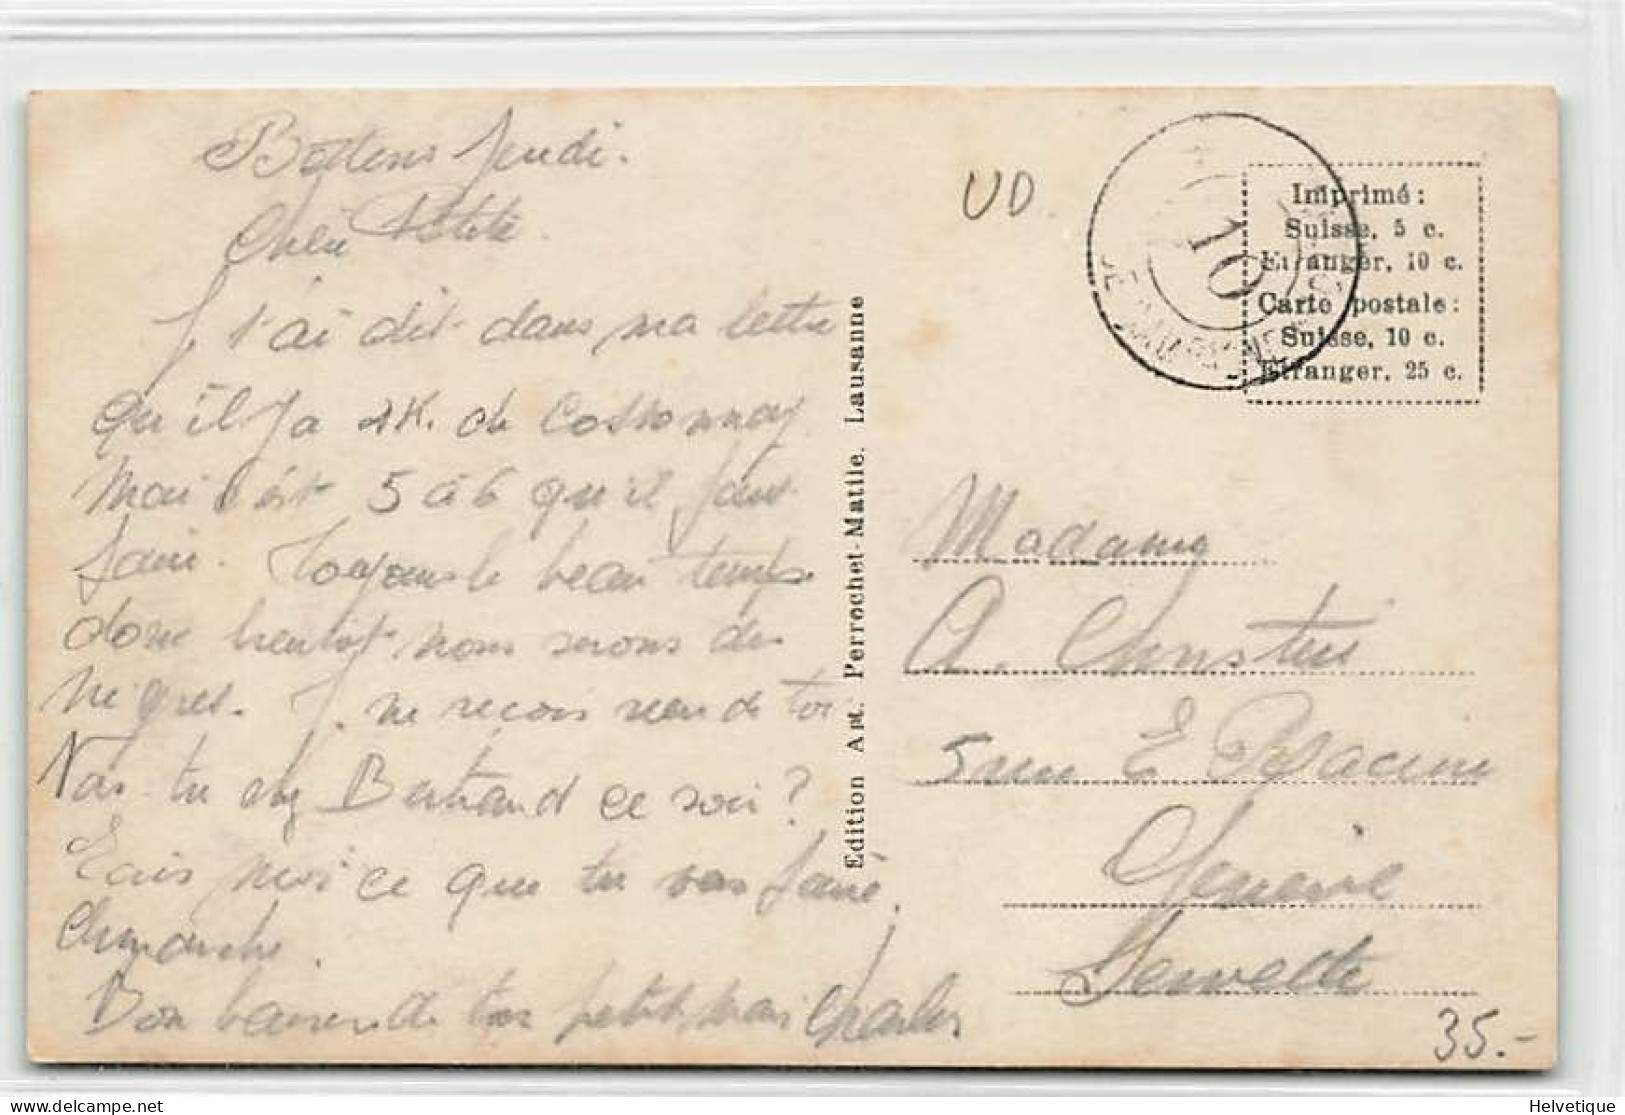 Bottens Jeudi.
Petite
J t'ai dit dans ma lettre
qu'il y a 2 K. de Cossonnay
Mais c'est 5 à 6 qu'il faut
faire. Toujours le beau temps
donc bientôt nous serons des
nègres. J. ne reçois rien de toi
Vas tu chez Bertrand ce soir?
Ecris moi ce que tu vas faire
dimanche.
Bon baiser de ton petit mari Charles
UD
10
Imprimé:
Suisse, 5 c.
Etranger, 10 c.
Carte postale:
Suisse, 10 c.
Etranger, 25 c.
Edition Art. Perrochet-Matile. Lausanne
Madame
A.
5 rue E
Genève
Servette
35.-
picclick.com
Helvetique